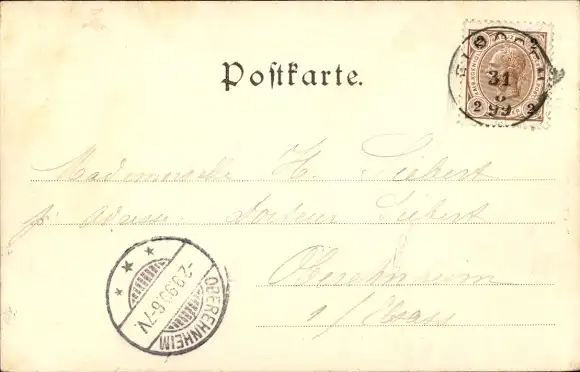 Postkarte.
2 2
31
8
99
2 2
Mademoiselle H. Siebert
Adresse Docteur Siebert
Oberehnheim
i/Elsass
OBEREHNHEIM
-2.9.99.6-7V.